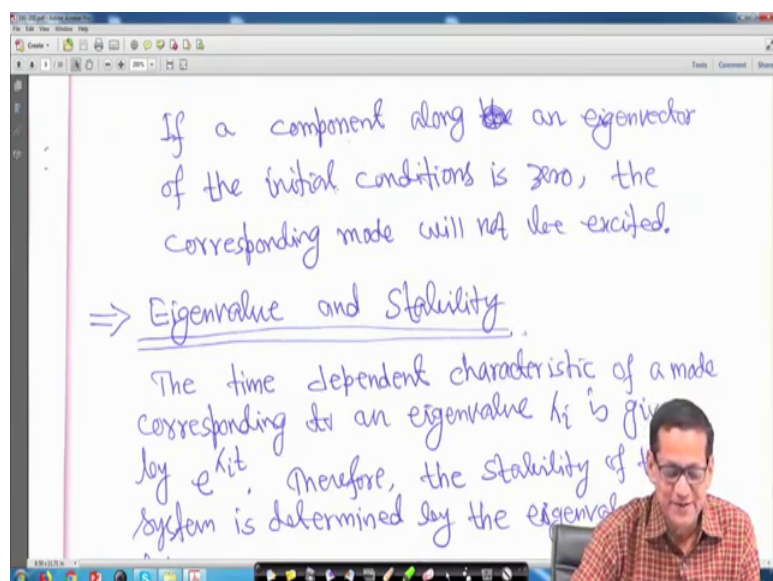 File Edit View Window Help
Create
Tools Comment Share
If a component along an eigenvector
of the initial conditions is zero, the
corresponding mode will not be excited.
⇒ Eigenvalue and Stability
The time dependent characteristic of a mode
corresponding to an eigenvalue λi is
by e^λit. Therefore, the stability of
system is determined by the